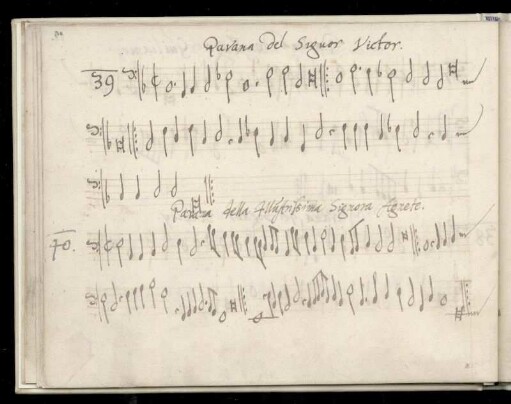 Pavana del Signor Victor.
39
Pavana della Illustrissima Signora Agnete.
70.